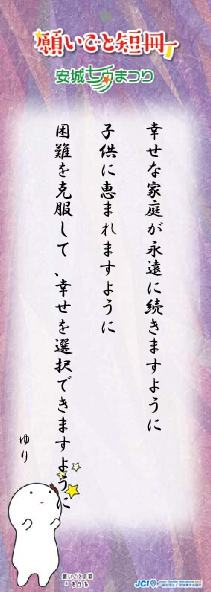 願いごと短冊
安城七夕まつり
幸せな家庭が永遠に続きますように
子供に恵まれますように
困難を克服して、幸せを選択できますように
ゆり
JCI